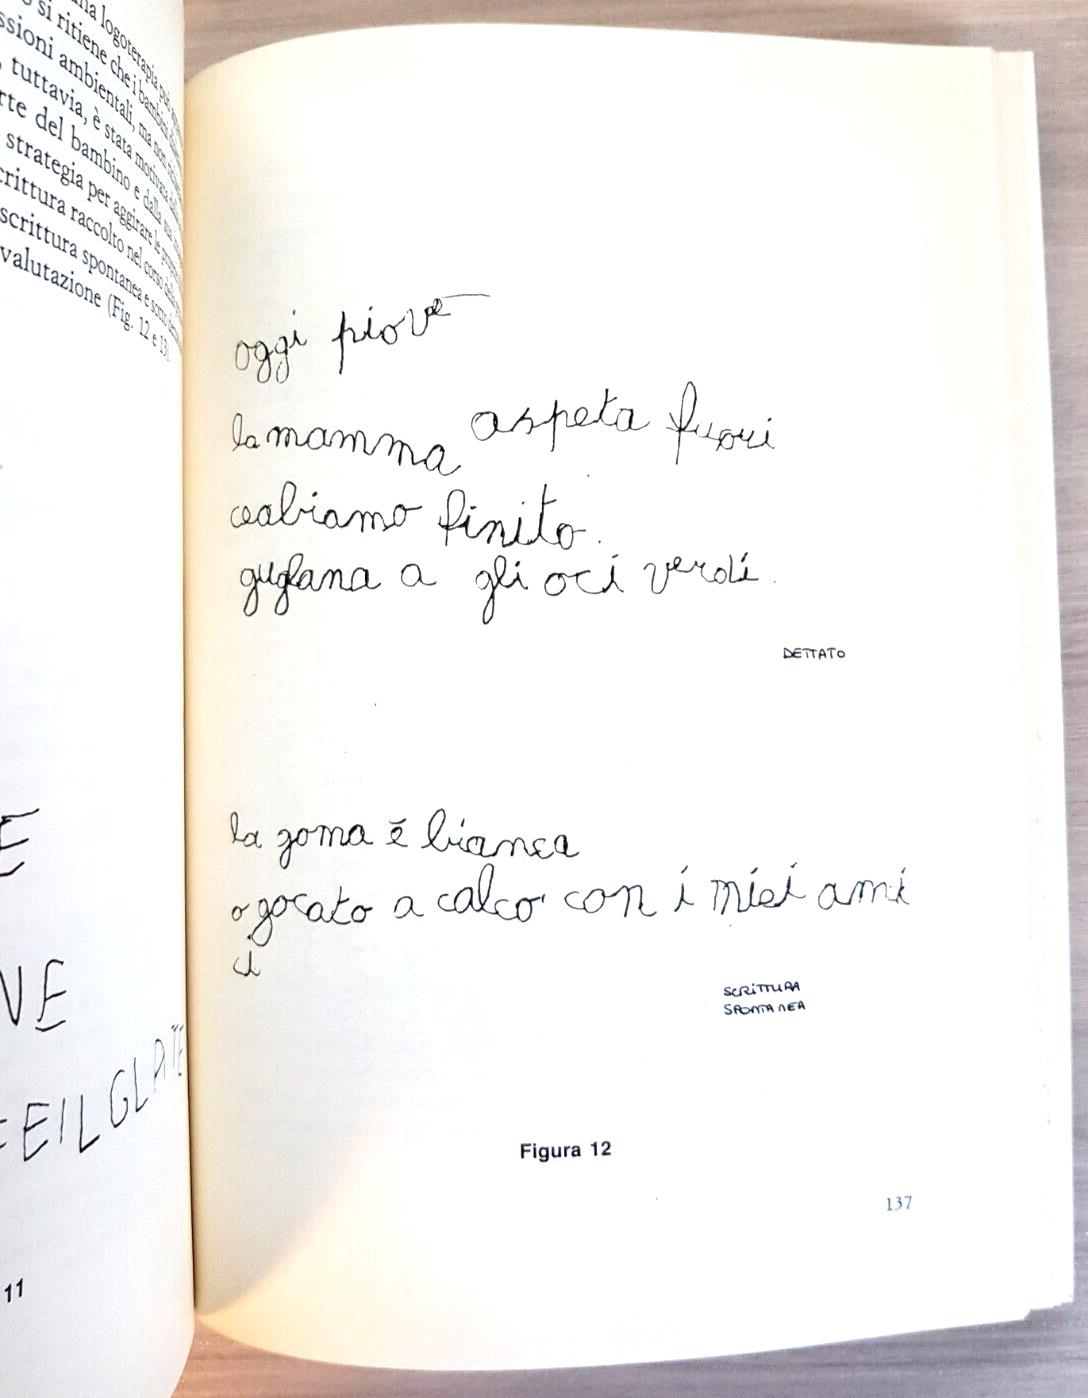 una logoterapia può
si ritiene che i bambini
ssioni ambientali, ma non
, tuttavia, è stata motivata
rte del bambino e dalla sua
strategia per aggirare le
crittura raccolto nel corso della
scrittura spontanea e sotto
valutazione (Fig. 12 e 13)
E
NE
EILGLATE
11
oggi piove
la mamma aspeta fuori
ceabiamo finito.
guglana a gli oci verdi.
DETTATO
la goma è bianca
o gocato a calco con i miei ami
ci
SCRITTURA
SPONTANEA
Figura 12
137